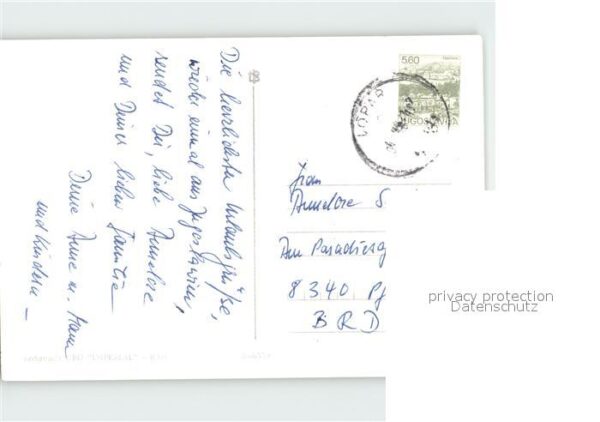 Die herzlichsten Urlaubsgrüße,
wieder einmal aus Jugoslawien,
sendet Dir, liebe Annelore
und Deiner lieben Familie
Deine Anne u. Hans
und Kindern –
5.60
JUGOSLAVIJA
LOPAR
Frau
Annelore S
Am Paradies
8340 Pf
BRD
privacy protection
Datenschutz